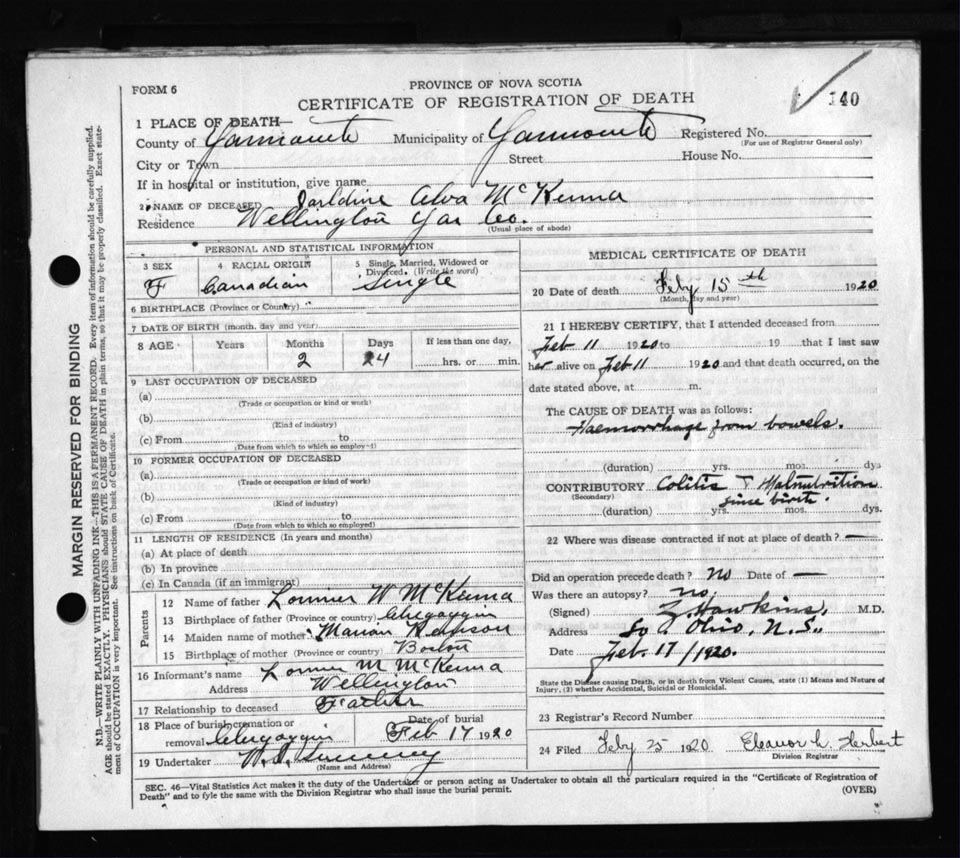 FORM 6
PROVINCE OF NOVA SCOTIA
CERTIFICATE OF REGISTRATION OF DEATH
140
1 PLACE OF DEATH—
County of Yarmouth Municipality of Yarmouth Registered No.
(For use of Registrar General only)
City or Town Street House No.
If in hospital or institution, give name
2 NAME OF DECEASED Alva McKenna
Residence Wellington Yar Co.
(Usual place of abode)
PERSONAL AND STATISTICAL INFORMATION
3 SEX 4 RACIAL ORIGIN 5 Single, Married, Widowed or Divorced. (Write the word)
F Canadian Single
6 BIRTHPLACE (Province or County)
7 DATE OF BIRTH (month, day and year)
8 AGE Years Months Days If less than one day,
2 24 hrs. or min.
9 LAST OCCUPATION OF DECEASED
(a)
(Trade or occupation or kind or work)
(b)
(Kind of industry)
(c) From to
(Date from which to which so employed)
10 FORMER OCCUPATION OF DECEASED
(a)
(Trade or occupation or kind of work)
(b)
(Kind of industry)
(c) From to
(Date from which to which so employed)
11 LENGTH OF RESIDENCE (In years and months)
(a) At place of death
(b) In province
(c) In Canada (if an immigrant)
Parents
12 Name of father W McKenna
13 Birthplace of father (Province or country) Chegoggin
14 Maiden name of mother Marion
15 Birthplace of mother (Province or country) Boston
16 Informant's name M McKenna
Address Wellington
17 Relationship to deceased Father
18 Place of burial, cremation or Date of burial
removal Chegoggin Feb 17 1920
19 Undertaker
(Name and Address)
MEDICAL CERTIFICATE OF DEATH
20 Date of death Feby 15th 1920
(Month, day and year)
21 I HEREBY CERTIFY, that I attended deceased from
Feb 11 1920 to 19 that I last saw
her alive on Feb 11 1920 and that death occurred, on the
date stated above, at m.
The CAUSE OF DEATH was as follows:
Haemorrhage from bowels.
(duration) yrs. mos. dys
CONTRIBUTORY Colitis & Malnutrition
(Secondary) since birth.
(duration) yrs. mos. dys.
22 Where was disease contracted if not at place of death? —
Did an operation precede death? No Date of —
Was there an autopsy? no
(Signed) Z. Hawkins. M.D.
Address So. Ohio, N.S.
Date Feb. 17/1920.
State the Disease causing Death, or in death from Violent Causes, state (1) Means and Nature of
Injury, (2) whether Accidental, Suicidal or Homicidal.
23 Registrar's Record Number
24 Filed Feby 25 1920 Eleanor Herbert
Division Registrar
SEC. 46—Vital Statistics Act makes it the duty of the Undertaker or person acting as Undertaker to obtain all the particulars required in the "Certificate of Registration of
Death" and to fyle the same with the Division Registrar who shall issue the burial permit. (OVER)
MARGIN RESERVED FOR BINDING
N.B.—WRITE PLAINLY WITH UNFADING INK—THIS IS A PERMANENT RECORD. Every item of information should be carefully supplied.
AGE should be stated EXACTLY. PHYSICIANS should STATE CAUSE OF DEATH in plain terms, so that it may be properly classified. Exact state-
ment of OCCUPATION is very important. See instructions on back of Certificate.